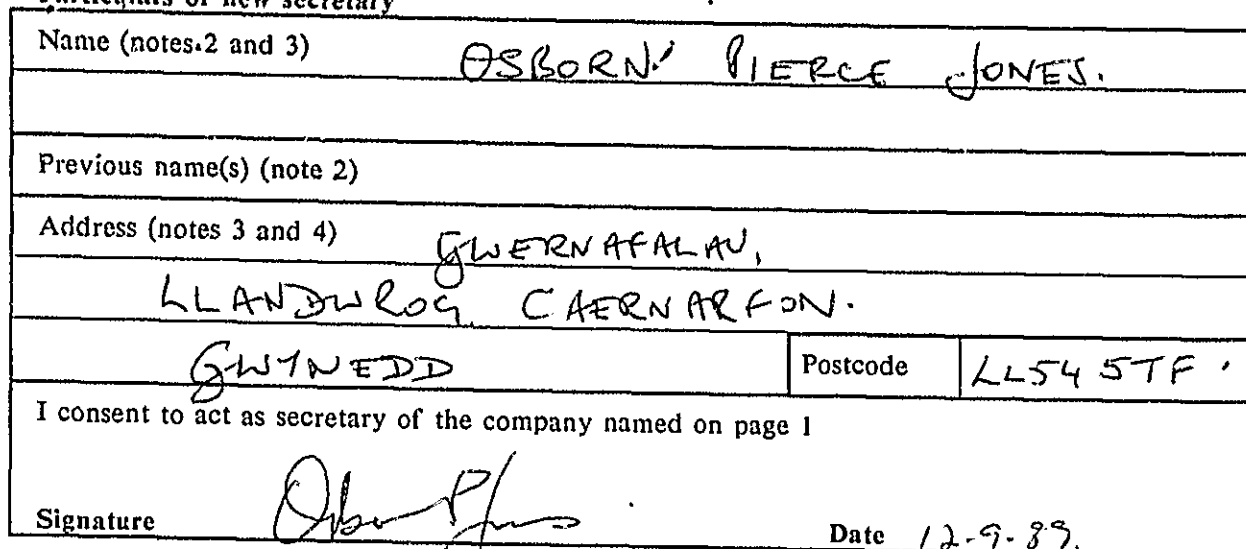 Particulars of new secretary
Name (notes 2 and 3) OSBORN PIERCE JONES.
Previous name(s) (note 2)
Address (notes 3 and 4) GWERNAFALAU,
LLANDWROG, CAERNARFON.
GWYNEDD Postcode LL54 5TF
I consent to act as secretary of the company named on page 1
Signature Date 12-9-89.